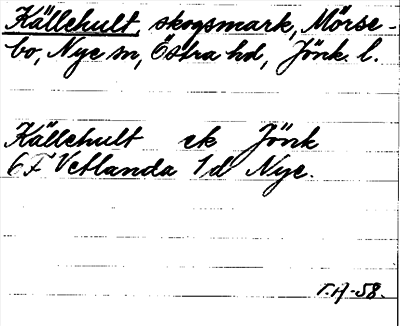 Källehult, skogsmark, Mörse-
bo, Nye sn, Östra hd, Jönk. l.
Källehult ek Jönk
6F Vetlanda 1d Nye.
T.H-58.